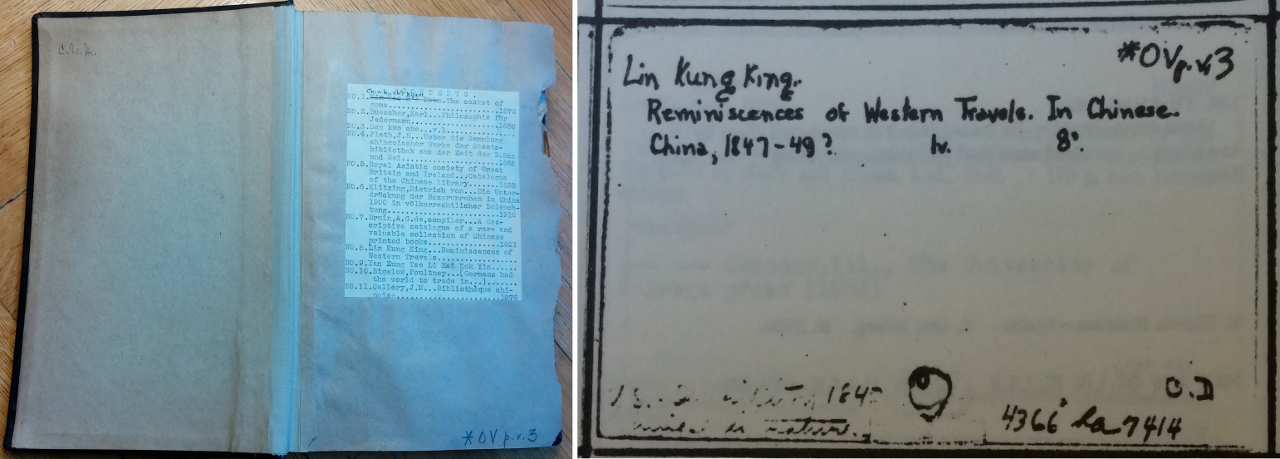 C.W.A.
CONTENTS.
NO.1. The casket of
gems 1872
NO.2. Buescher,Karl...Philosophie für
Jedermann
NO.3. Dan kwo che...v.1
NO.4. Plath,J.H...Ueber die Sammlung
chinesischer Werke der Staats-
bibliothek aus der Zeit der D.Han
und Wei 1868
NO.5. Royal Asiatic society of Great
Britain and Ireland...Catalogue
of the Chinese library
NO.6. Klitzing,Dietrich von...Die Unter-
drückung der Boxerunruhen in China
1900 in völkerrechtlicher Beleuch-
tung 1912
NO.7. Bruin,A.G.de,compiler...A des-
criptive catalogue of a rare and
valuable collection of Chinese
printed books 1921
NO.8. Lin Kung King...Reminiscences of
Western Travels
NO.9. Yan Zung Tse Li Hai Kok Yin
NO.10. Bigelow,Poultney...[Germans had
the world to trade in...]
NO.11. Callery,J.M...Bibliothèque chi-
noise 1876
*OV p.v.3
*OV p.v.3
Lin Kung King.
Reminiscences of Western Travels. In Chinese.
China, 1847-49? 1v. 8°.
1847
in nature.
O.D
4366 7414